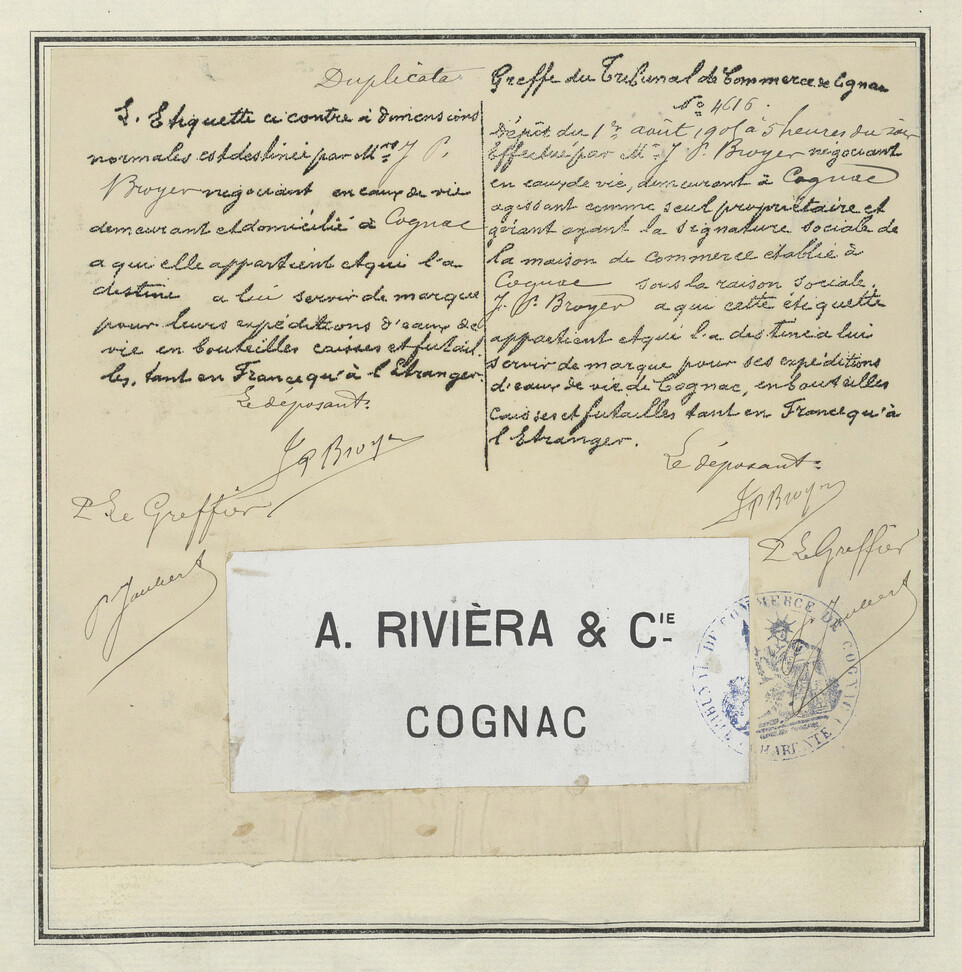 Duplicata
L'Etiquette ci contre à dimensions
normales est destinée par Mrs J P.
Broyer negociant en eaux de vie
demeurant et domicilié à Cognac
a qui elle appartient et qui l'a
destiné a lui servir de marque
pour leurs expéditions d'eaux de
vie en bouteilles caisses et futail
les, tant en France qu'à l'Etranger.
Le déposant.
JP Broyer
P. Le Greffier
P. Joubert
Greffe du Tribunal de Commerce de Cognac
No 4616.
Dépôt du 1er août 1905 à 5 heures du soir
Effectué par Mr J. P. Broyer négociant
en eaux de vie, demeurant à Cognac
agissant comme seul propriétaire et
gérant ayant la signature sociale de
la maison de commerce établie à
Cognac sous la raison sociale
J. P. Broyer a qui cette étiquette
appartient et qui l'a destiné a lui
servir de marque pour ses expéditions
d'eaux de vie de Cognac, en bouteilles
caisses et futailles tant en France qu'à
l'Etranger.
Le déposant.
JP Broyer
P. Le Greffier
Joubert
A. RIVIÈRA & CIE
COGNAC
TRIBUNAL DE COMMERCE DE COGNAC
CHARENTE